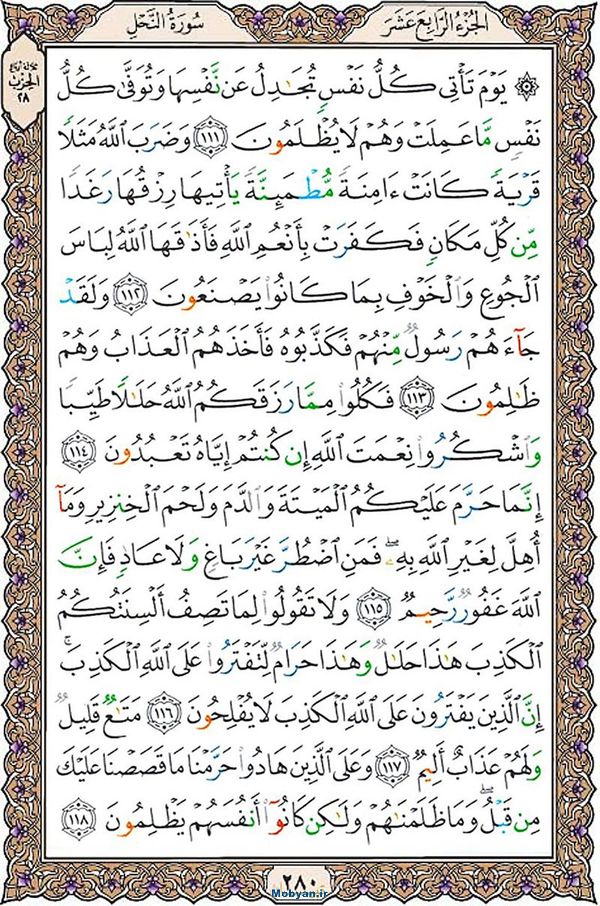 الجُزءُ الرَّابِعَ عَشَرَ
سُورَةُ النَّحْلِ
الحِزْبُ
٢٨
۞ يَوْمَ تَأْتِى كُلُّ نَفْسٍ تُجَٰدِلُ عَن نَّفْسِهَا وَتُوَفَّىٰ كُلُّ
نَفْسٍ مَّا عَمِلَتْ وَهُمْ لَا يُظْلَمُونَ ١١١ وَضَرَبَ ٱللَّهُ مَثَلًا
قَرْيَةً كَانَتْ ءَامِنَةً مُّطْمَئِنَّةً يَأْتِيهَا رِزْقُهَا رَغَدًا
مِّن كُلِّ مَكَانٍ فَكَفَرَتْ بِأَنْعُمِ ٱللَّهِ فَأَذَٰقَهَا ٱللَّهُ لِبَاسَ
ٱلْجُوعِ وَٱلْخَوْفِ بِمَا كَانُوا۟ يَصْنَعُونَ ١١٢ وَلَقَدْ
جَآءَهُمْ رَسُولٌ مِّنْهُمْ فَكَذَّبُوهُ فَأَخَذَهُمُ ٱلْعَذَابُ وَهُمْ
ظَٰلِمُونَ ١١٣ فَكُلُوا۟ مِمَّا رَزَقَكُمُ ٱللَّهُ حَلَٰلًا طَيِّبًا
وَٱشْكُرُوا۟ نِعْمَتَ ٱللَّهِ إِن كُنتُمْ إِيَّاهُ تَعْبُدُونَ ١١٤
إِنَّمَا حَرَّمَ عَلَيْكُمُ ٱلْمَيْتَةَ وَٱلدَّمَ وَلَحْمَ ٱلْخِنزِيرِ وَمَآ
أُهِلَّ لِغَيْرِ ٱللَّهِ بِهِۦ ۖ فَمَنِ ٱضْطُرَّ غَيْرَ بَاغٍ وَلَا عَادٍ فَإِنَّ
ٱللَّهَ غَفُورٌ رَّحِيمٌ ١١٥ وَلَا تَقُولُوا۟ لِمَا تَصِفُ أَلْسِنَتُكُمُ
ٱلْكَذِبَ هَٰذَا حَلَٰلٌ وَهَٰذَا حَرَامٌ لِّتَفْتَرُوا۟ عَلَى ٱللَّهِ ٱلْكَذِبَ ۚ
إِنَّ ٱلَّذِينَ يَفْتَرُونَ عَلَى ٱللَّهِ ٱلْكَذِبَ لَا يُفْلِحُونَ ١١٦ مَتَٰعٌ قَلِيلٌ
وَلَهُمْ عَذَابٌ أَلِيمٌ ١١٧ وَعَلَى ٱلَّذِينَ هَادُوا۟ حَرَّمْنَا مَا قَصَصْنَا عَلَيْكَ
مِن قَبْلُ ۖ وَمَا ظَلَمْنَٰهُمْ وَلَٰكِن كَانُوٓا۟ أَنفُسَهُمْ يَظْلِمُونَ ١١٨
٢٨٠
Mobyan.ir